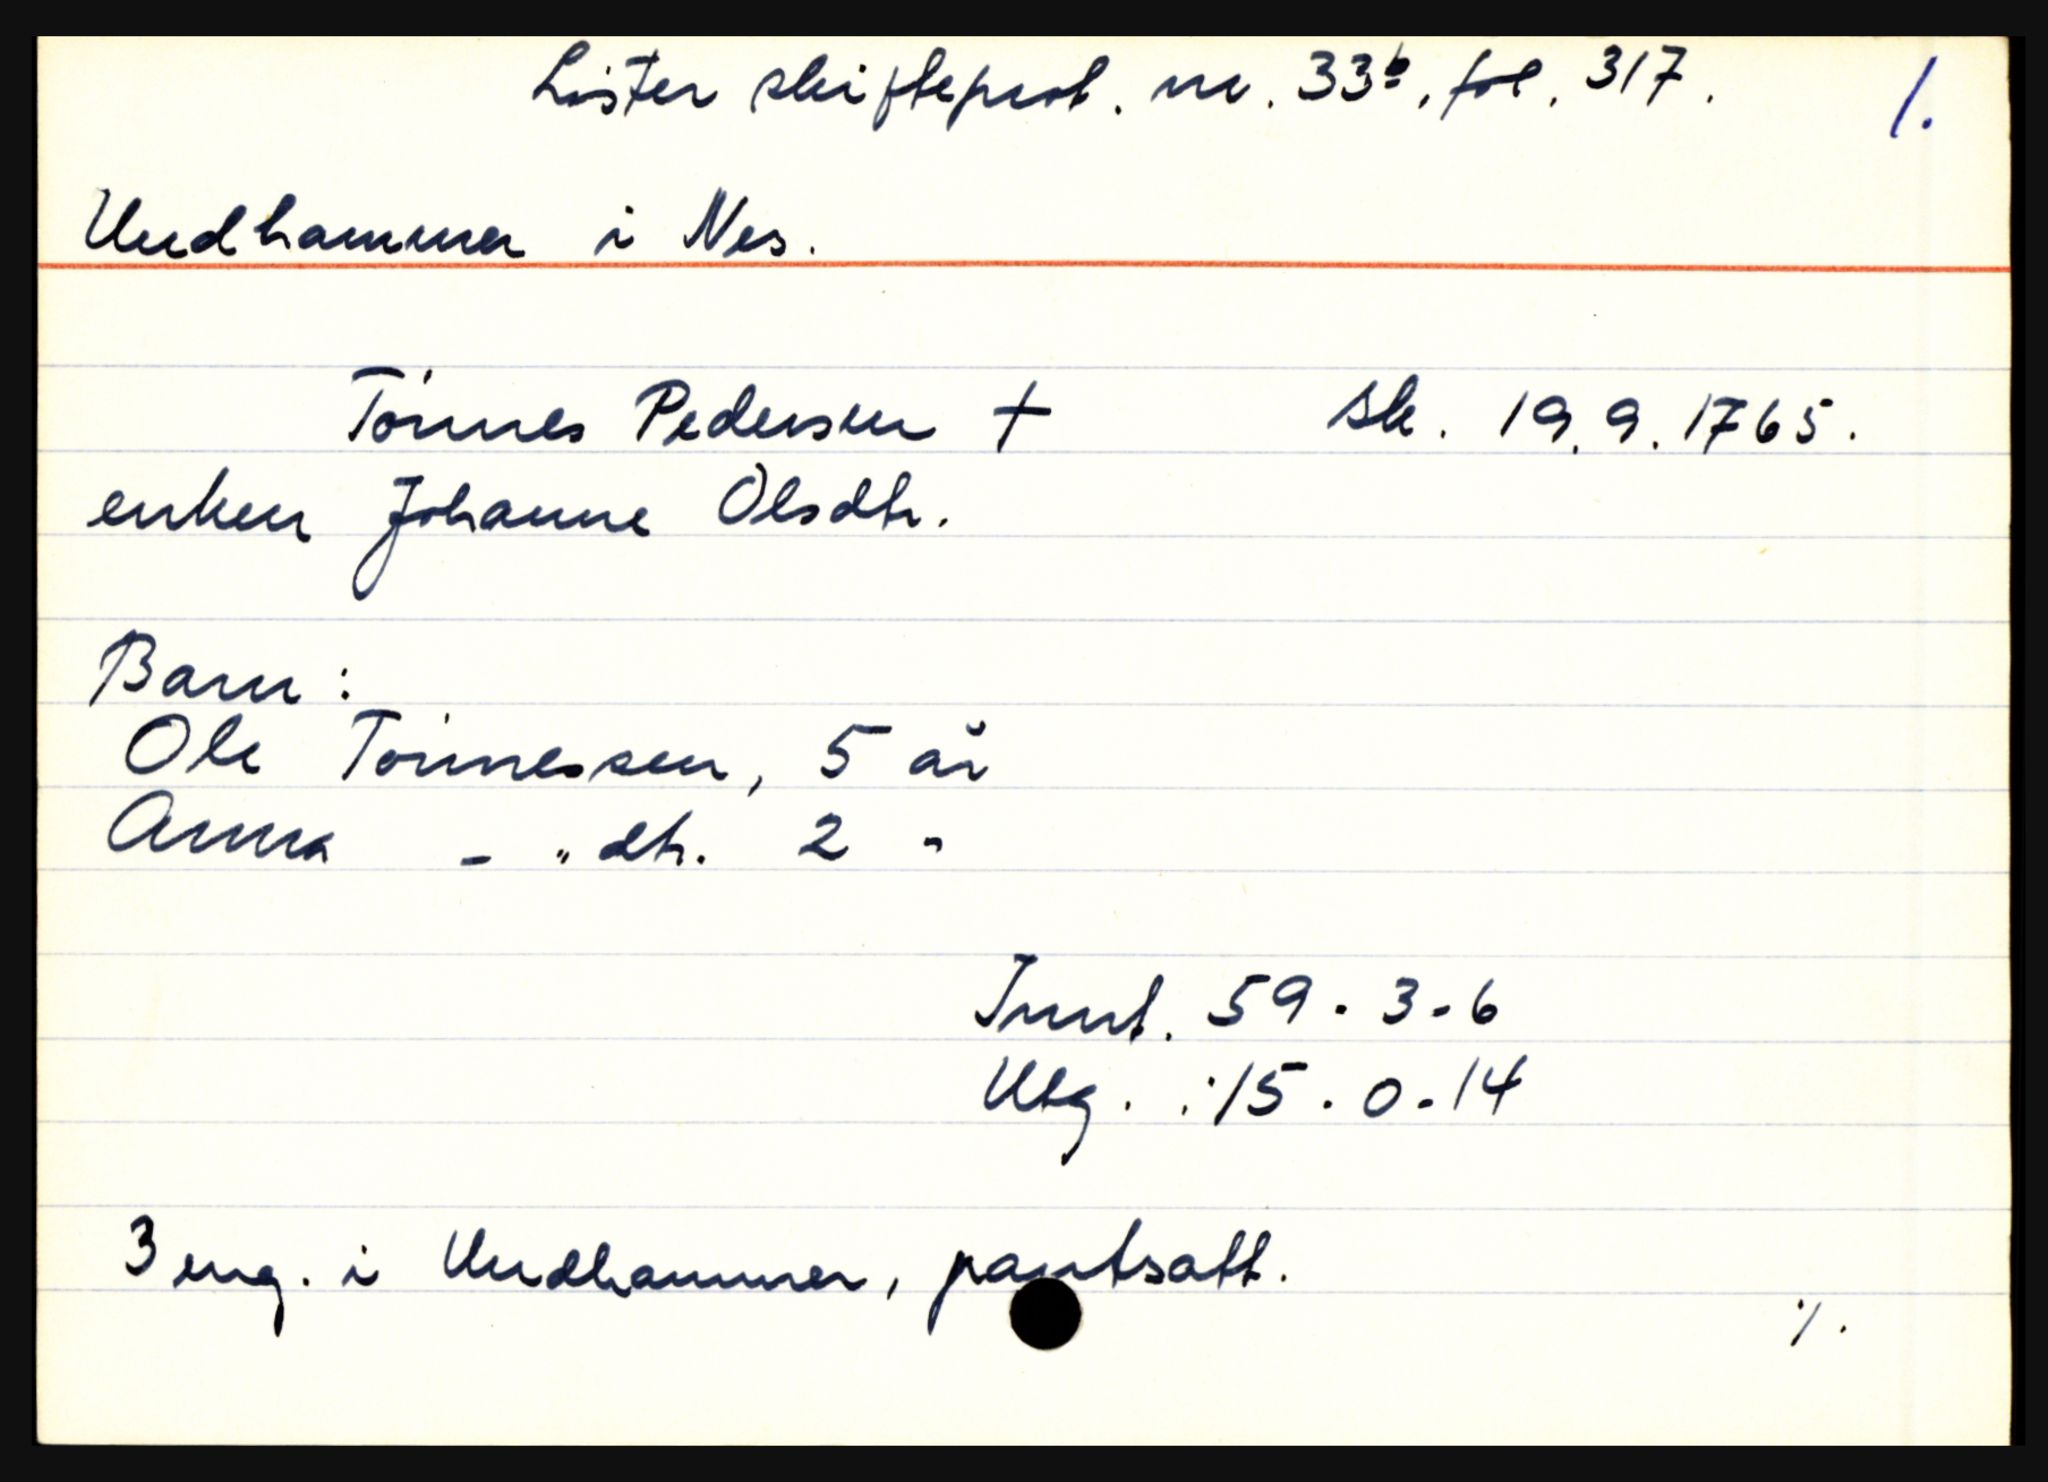 Lister skifteprot. nr. 33b, fol. 317. 1.
Undhammer i Nes.
Tönnes Pedersen † sk. 19.9.1765.
enken Johanne Olsdtr.
Barn:
Ole Tönnessen, 5 år
Anna - " dtr. 2 "
Innt. 59 - 3 - 6
Utg. : 15 - 0 - 14
3 eng. i Undhammer, pantsatt.
./.